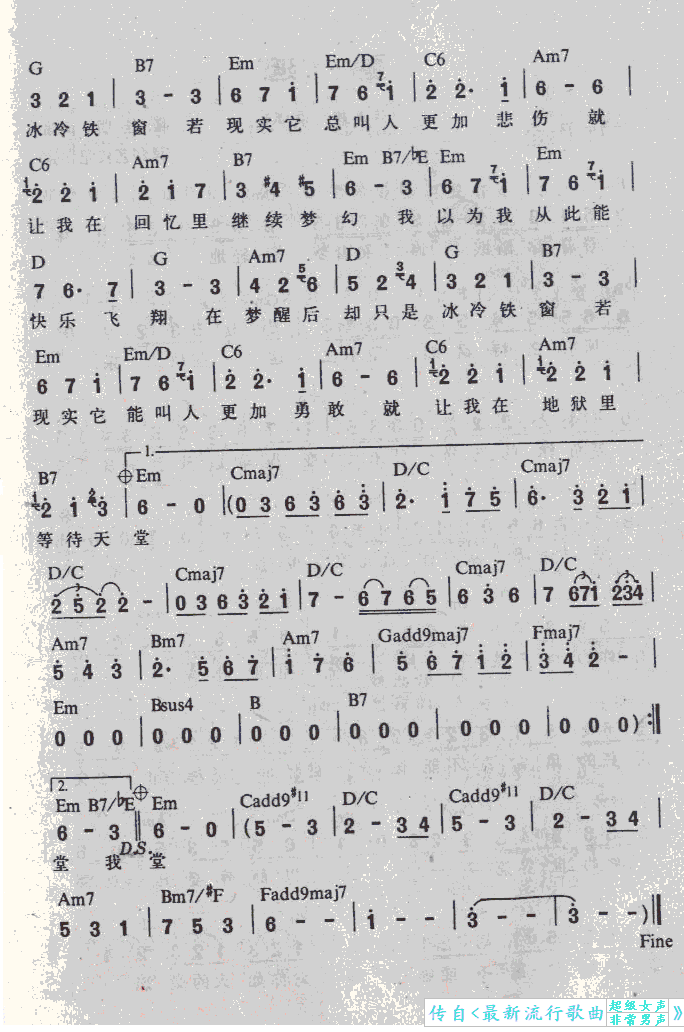 G B7 Em Em/D C6 Am7
3 2 1 | 3 - 3 | 6 7 i | 7 6 7i | 2 2· i | 6 - 6 |
冰冷铁 窗 若 现实它 总叫人 更加 悲伤 就
C6 Am7 B7 Em B7/♭E Em Em
i2 2 i | 2 i 7 | 3 #4 #5 | 6 - 3 | 6 7 7i | 7 6 7i |
让我在 回忆里 继续梦 幻 我 以为我 从此能
D G Am7 D G B7
7 6· 7 | 3 - 3 | 4 2 56 | 5 2 34 | 3 2 1 | 3 - 3 |
快乐 飞 翔 在 梦醒后 却只是 冰冷铁 窗 若
Em Em/D C6 Am7 C6 Am7
6 7 i | 7 6 7i | 2 2· i | 6 - 6 | i2 2 i | i2 2 i |
现实它 能叫人 更加 勇敢 就 让我在 地狱里
1.
B7 Em Cmaj7 D/C Cmaj7
i2 i 23 | 6 - 0 | (0 3 6 3 6 3 | 2· i 7 5 | 6· 3 2 i |
等待天 堂
D/C Cmaj7 D/C Cmaj7 D/C
2 5 2 2 - | 0 3 6 3 2 i | 7 - 6 7 6 5 | 6 3 6 | 7 67i 234 |
Am7 Bm7 Am7 Gadd9maj7 Fmaj7
5 4 3 | 2· 5 6 7 | i 7 6 | 5 6 7 i 2 | 3 4 2 - |
Em Bsus4 B B7
0 0 0 | 0 0 0 | 0 0 0 | 0 0 0 | 0 0 0 | 0 0 0) :‖
2.
Em B7/♭E Em Cadd9#11 D/C Cadd9#11 D/C
6 - 3 ‖ 6 - 0 | (5 - 3 | 2 - 3 4 | 5 - 3 | 2 - 3 4 |
D.S.
堂 我 堂
Am7 Bm7/#F Fadd9maj7
5 3 1 | 7 5 3 | 6 - - | i - - | 3 - - | 3 - -) ‖
Fine
传自<最新流行歌曲 超级女声 非常男声 》